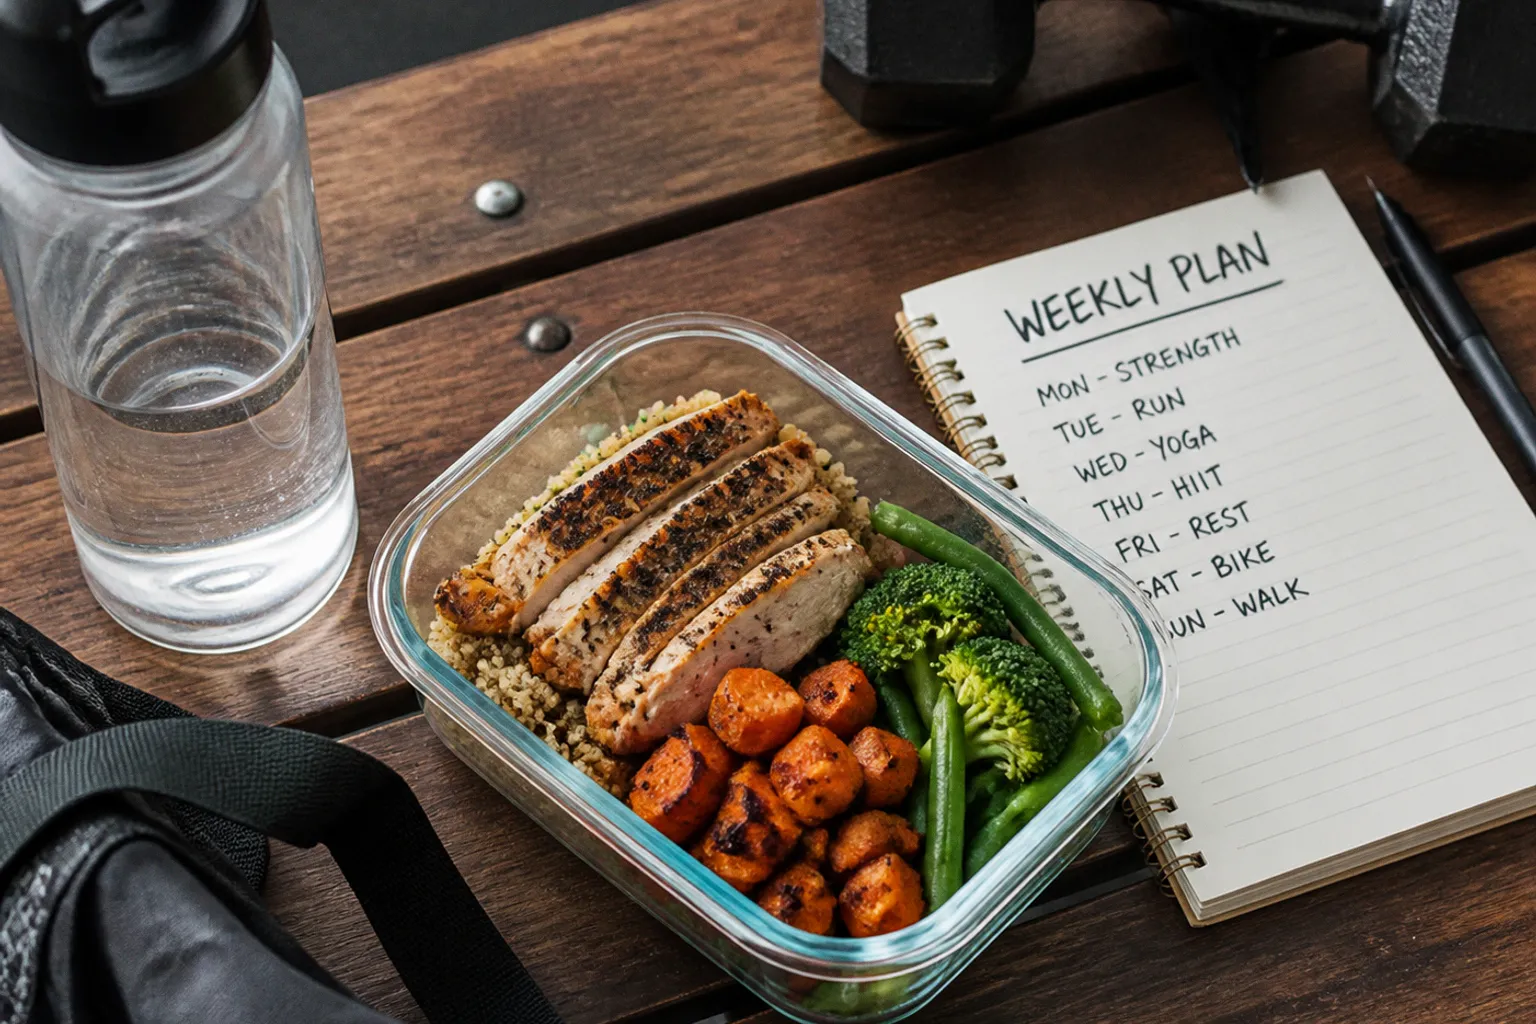 WEEKLY PLAN
MON - STRENGTH
TUE - RUN
WED - YOGA
THU - HIIT
FRI - REST
SAT - BIKE
UN - WALK